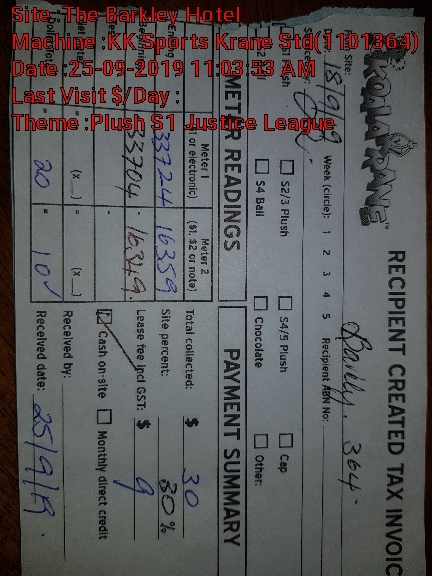 Site :The Barkley Hotel
Machine :KK Sports Krane Std(1101364)
Date :25-09-2019 11:03:53 AM
Last Visit $/Day :
Theme :Plush $1 Justice League
KOALA KRANE
RECIPIENT CREATED TAX INVOIC
Site: Barkly. 364.
18/9/19 Week (circle): 1 2 3 4 5 Recipient ABN No:
S2/3 Plush S4/5 Plush Cap
S4 Ball Chocolate Other:
METER READINGS
PAYMENT SUMMARY
Meter 1 Meter 2
or electronic) ($1, $2 or note)
33724 16359
33704 16349
(x __) (x __)
20 = 10
Total collected: $ 30
Site percent: 30%
Lease fee incl GST: $ 9
Cash on-site Monthly direct credit
Received by:
Received date: 25/9/19.